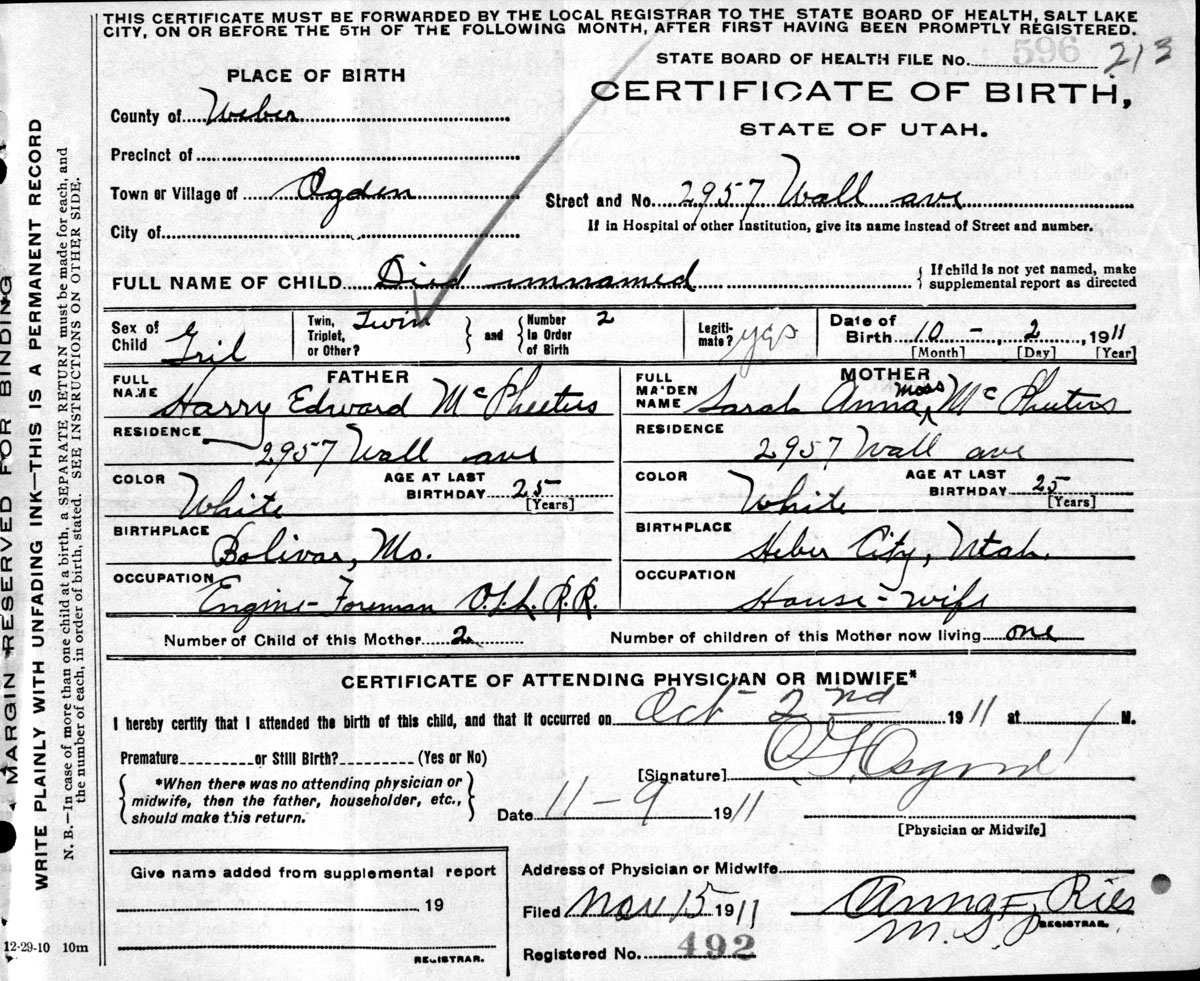 THIS CERTIFICATE MUST BE FORWARDED BY THE LOCAL REGISTRAR TO THE STATE BOARD OF HEALTH, SALT LAKE
CITY, ON OR BEFORE THE 5TH OF THE FOLLOWING MONTH, AFTER FIRST HAVING BEEN PROMPTLY REGISTERED.
STATE BOARD OF HEALTH FILE No. 596 213
PLACE OF BIRTH
CERTIFICATE OF BIRTH,
STATE OF UTAH.
County of Weber
Precinct of
Town or Village of Ogden
Street and No. 2957 Wall ave
City of
If in Hospital or other Institution, give its name instead of Street and number.
FULL NAME OF CHILD Died unnamed { If child is not yet named, make supplemental report as directed
Sex of Child Gril
Twin, Triplet, or Other? Twin } and { Number in Order of Birth 2
Legiti-mate? yes
Date of Birth 10 - 2, 1911
[Month] [Day] [Year]
FATHER
FULL NAME Harry Edward McPheeters
RESIDENCE 2957 Wall ave
COLOR White
AGE AT LAST BIRTHDAY 25 [Years]
BIRTHPLACE Bolivar, Mo.
OCCUPATION Engine-Foreman O.S.L. R.R.
MOTHER
FULL MAIDEN NAME Sarah Anna Moss McPheeters
RESIDENCE 2957 Wall ave
COLOR White
AGE AT LAST BIRTHDAY 25 [Years]
BIRTHPLACE Heber City, Utah.
OCCUPATION House-wife
Number of Child of this Mother 2
Number of children of this Mother now living one
CERTIFICATE OF ATTENDING PHYSICIAN OR MIDWIFE*
I hereby certify that I attended the birth of this child, and that it occurred on Oct 2nd 1911 at 1 M.
Premature or Still Birth? (Yes or No)
{ *When there was no attending physician or
midwife, then the father, householder, etc.,
should make this return. }
[Signature] Osgood
Date 11-9 1911
[Physician or Midwife]
Give name added from supplemental report
19
REGISTRAR.
Address of Physician or Midwife
Filed Nov 15 1911 Anna F. Ries
REGISTRAR.
Registered No. 492
12-29-10 10m
MARGIN RESERVED FOR BINDING
WRITE PLAINLY WITH UNFADING INK—THIS IS A PERMANENT RECORD
N. B.—In case of more than one child at a birth, a SEPARATE RETURN must be made for each, and
the number of each, in order of birth, stated. SEE INSTRUCTIONS ON OTHER SIDE.